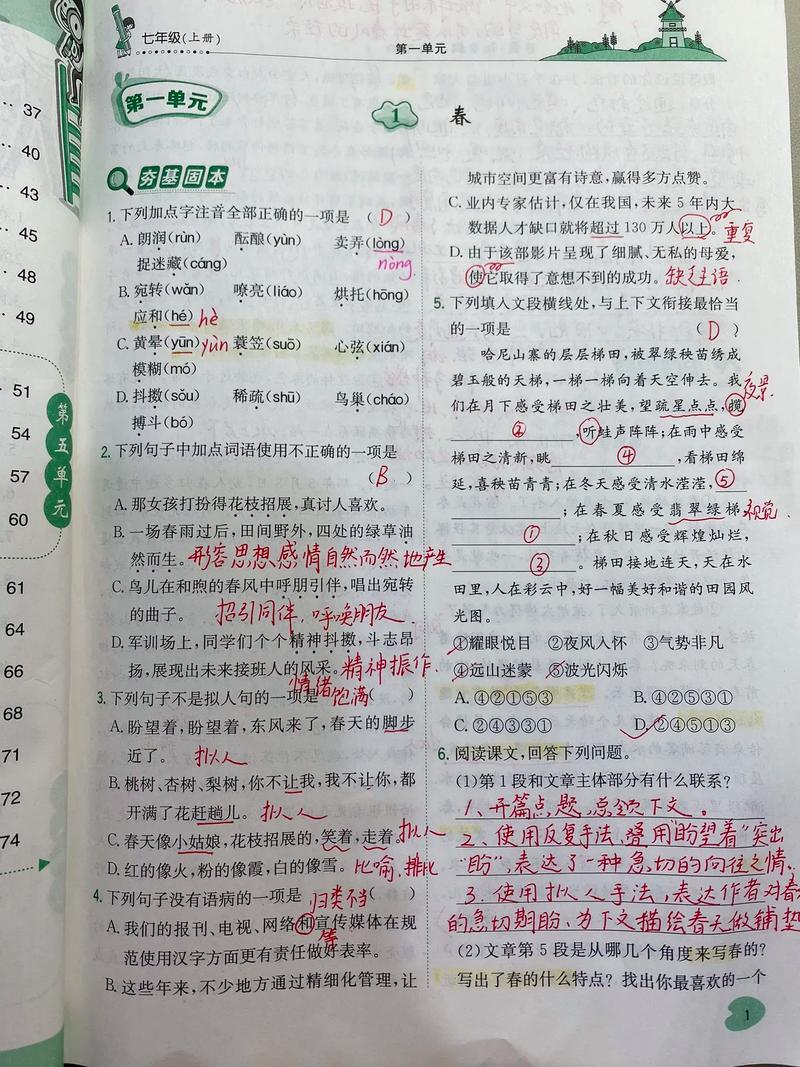 37
40
43
45
48
49
51
54
57
60
61
64
66
68
71
72
74
第五单元
七年级(上册)
第一单元
第一单元
1 春
夯基固本
1. 下列加点字注音全部正确的一项是 ( D )
A. 朗润(rùn) 酝酿(yùn) 卖弄(lòng)
nòng
捉迷藏(cáng)
B. 宛转(wǎn) 嘹亮(liáo) 烘托(hōng)
应和(hé) hè
C. 黄晕(yūn) yùn 蓑笠(suō) 心弦(xián)
模糊(mó)
D. 抖擞(sǒu) 稀疏(shū) 鸟巢(cháo)
搏斗(bó)
2. 下列句子中加点词语使用不正确的一项是
( B )
A. 那女孩打扮得花枝招展,真讨人喜欢。
B. 一场春雨过后,田间野外,四处的绿草油
然而生。 形容思想感情自然而然地产生
C. 鸟儿在和煦的春风中呼朋引伴,唱出宛转
的曲子。 招引同伴,呼唤朋友
D. 军训场上,同学们个个精神抖擞,斗志昂
扬,展现出未来接班人的风采。 精神振作.
情绪饱满
3. 下列句子不是拟人句的一项是 ( )
A. 盼望着,盼望着,东风来了,春天的脚步
近了。 拟人
B. 桃树、杏树、梨树,你不让我,我不让你,都
开满了花赶趟儿。 拟人
C. 春天像小姑娘,花枝招展的,笑着,走着。 拟人
D. 红的像火,粉的像霞,白的像雪。 比喻、排比
4. 下列句子没有语病的一项是 ( )
归类不当
A. 我们的报刊、电视、网络和宣传媒体在规
等
范使用汉字方面更有责任做好表率。
B. 这些年来,不少地方通过精细化管理,让
城市空间更富有诗意,赢得多方点赞。
C. 业内专家估计,仅在我国,未来 5 年内大
数据人才缺口就将超过 130 万人以上。 重复
D. 由于该部影片呈现了细腻、无私的母爱,
使它取得了意想不到的成功。 缺主语
5. 下列填入文段横线处,与上下文衔接最恰当
的一项是 ( D )
哈尼山寨的层层梯田,被翠绿秧苗绣成
碧玉般的天梯,一梯一梯向着天空伸去。我
夜景
们在月下感受梯田之壮美,望疏星点点,揽
②,听蛙声阵阵;在雨中感受
梯田之清新,眺④,看梯田绵
延,喜秧苗青青;在冬天感受清水滢滢,⑤
;在春夏感受翡翠绿梯 视觉
①;在秋日感受辉煌灿烂,
③。梯田接地连天,天在水
田里,人在彩云中,好一幅美好和谐的田园风
光图。
①耀眼悦目 ②夜风入怀 ③气势非凡
④远山迷蒙 ⑤波光闪烁
A. ④②①⑤③ B. ④②⑤③①
C. ②④③③① D. ②④⑤①③
6. 阅读课文,回答下列问题。
(1)第 1 段和文章主体部分有什么联系?
1、开篇点题,总领下文。
2、使用反复手法,叠用"盼望着"突出
"盼",表达了一种急切的向往之情.
3、使用拟人手法,表达作者对春
的急切期盼、为下文描绘春天做铺垫
(2)文章第 5 段是从哪几个角度来写春的?
写出了春的什么特点? 找出你最喜欢的一个
1